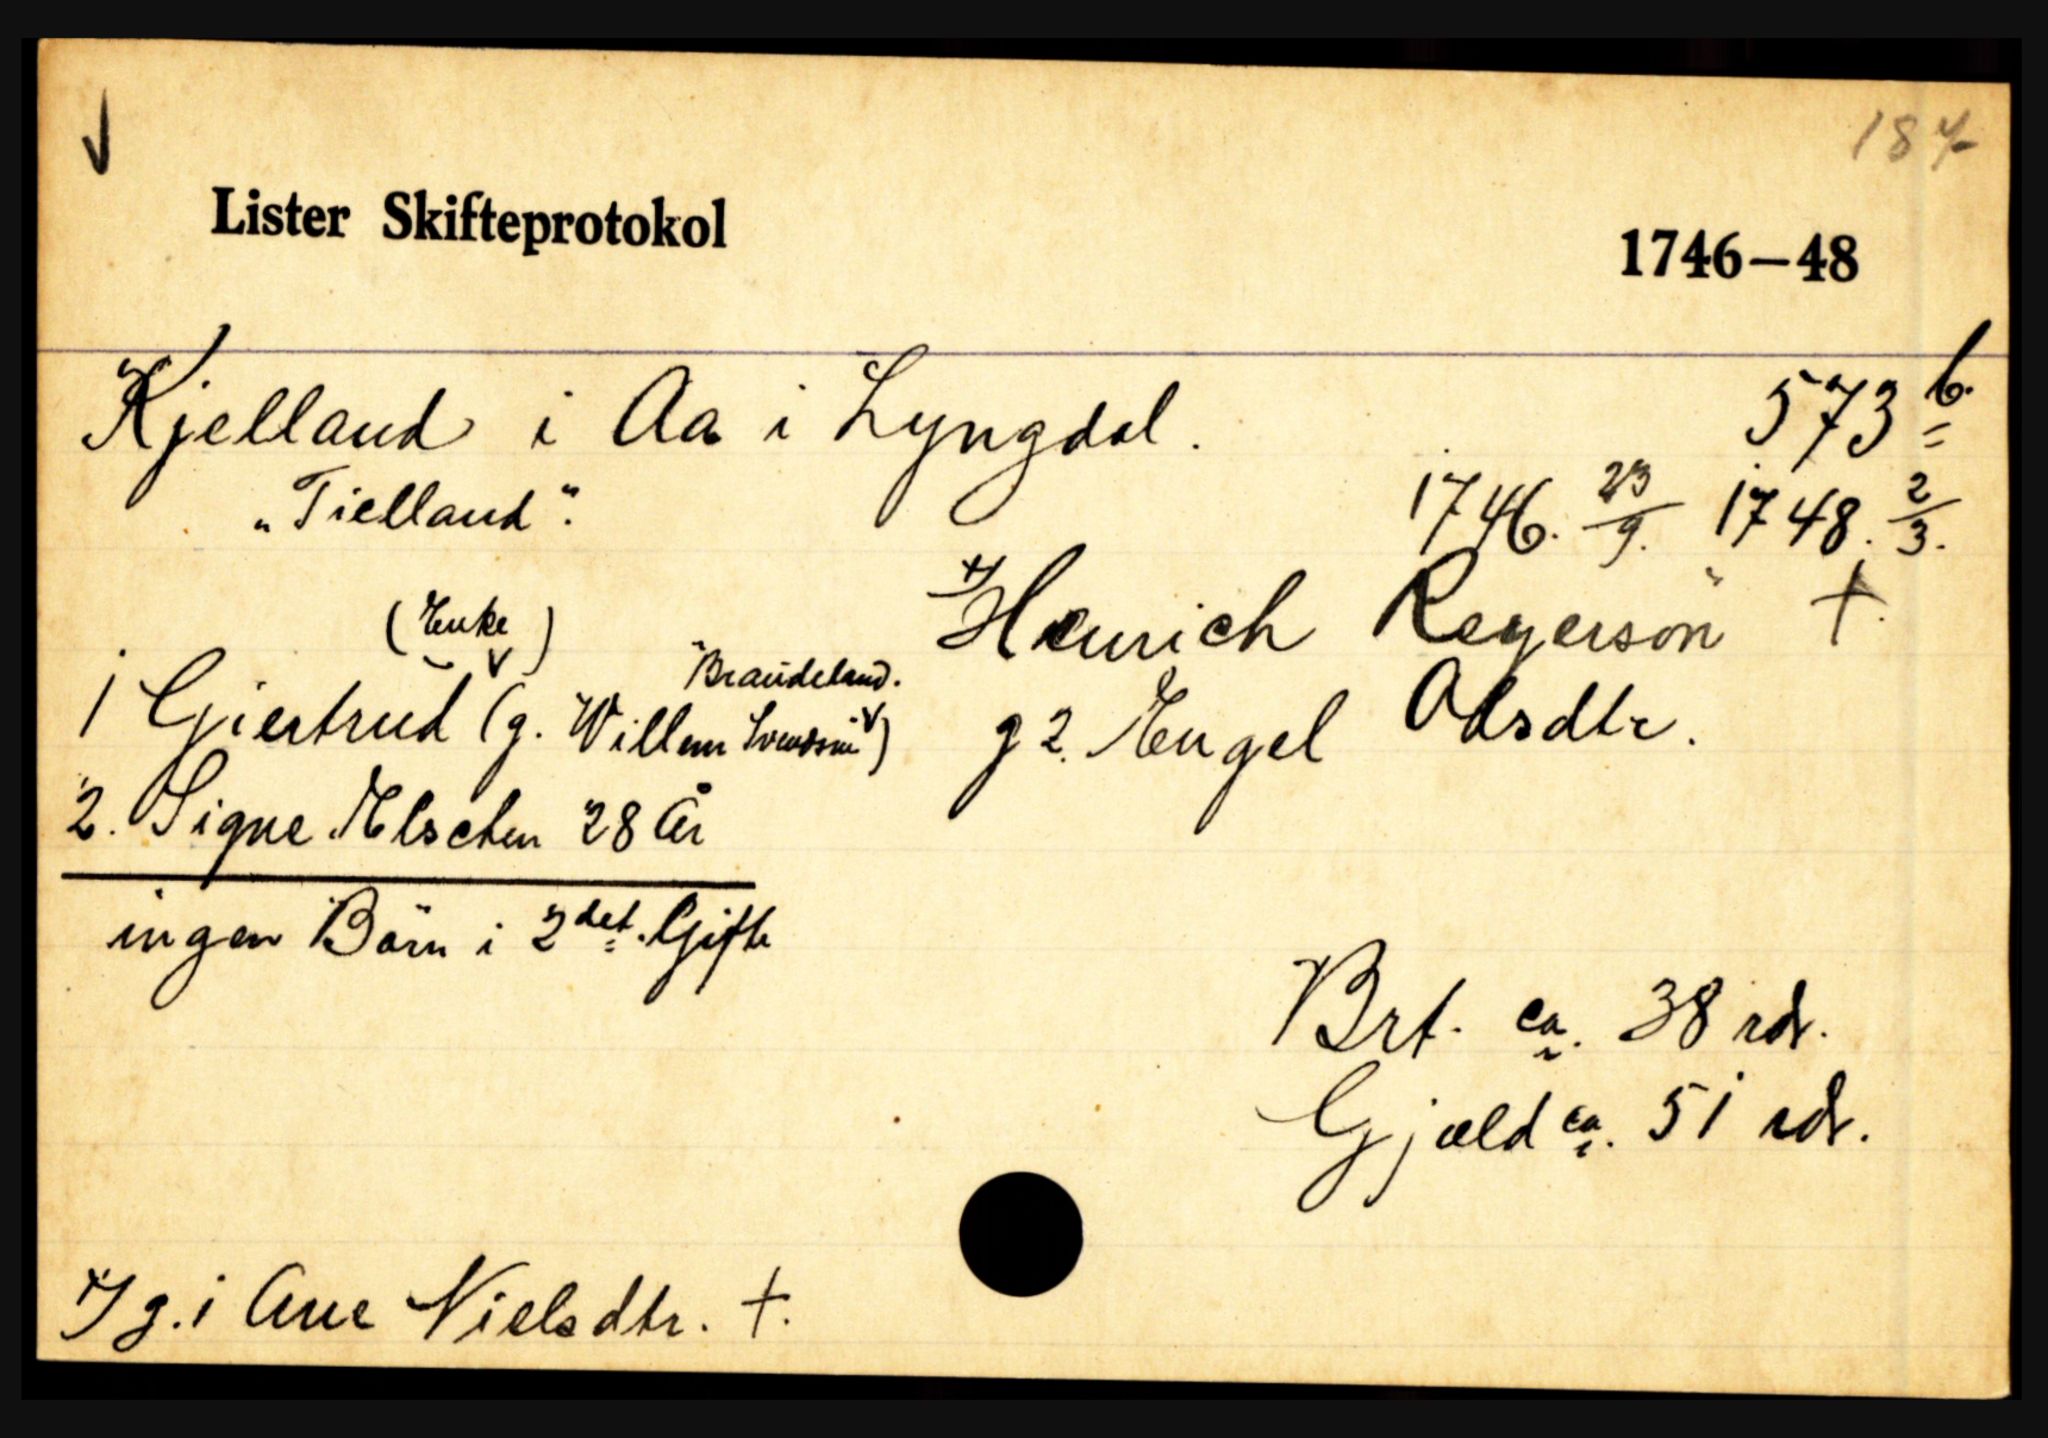 184
Lister Skifteprotokol 1746–48
Kjelland i Aa i Lyngdal. 573 b.
„Tielland".
1746. 23/9. 1748. 2/3.
Henrich Reyerson †.
(Enke)
Brandeland.
1 Giertrud (g. Willem Svendsen)
g 2. Engel Olsdtr.
2. Signe Elschen 28 År
ingen Börn i 2det. Gifte
Brt. ca. 38 rdr.
Gjæld ca. 51 rdr.
g. 1 Ane Nielsdtr. †.